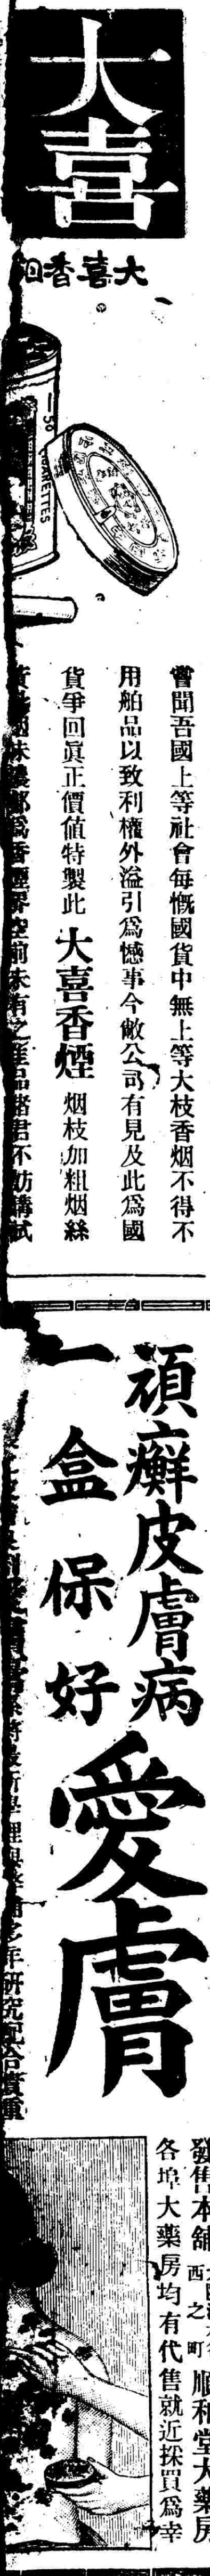 大喜
大喜香烟
50
CIGARETTES
嘗聞吾國上等社會每慨國貨中無上等大枝香烟不得不
用舶品以致利權外溢引爲憾事今敝公司有見及此爲國
貨爭回眞正價値特製此大喜香煙烟枝加粗烟絲
味濃郁爲香煙界空前未有之佳品諸君不妨購試
頑癬皮膚病
一盒保好
愛膚
新學理與多年研究配合
發售本舖
西之町
順和堂大藥房
各埠大藥房均有代售就近採買爲幸